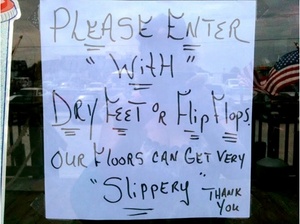 PLEASE ENTER
"WITH"
DRY FEET OR FLIP FLOPS.
OUR FLOORS CAN GET VERY
"SLIPPERY" THANK
YOU